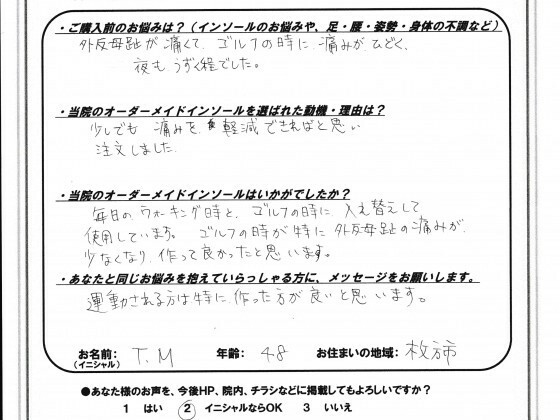 ・ご購入前のお悩みは?(インソールのお悩みや、足・腰・姿勢・身体の不調など)
外反母趾が痛くて、ゴルフの時に痛みがひどく、
夜もうずく程でした。
・当院のオーダーメイドインソールを選ばれた動機・理由は?
少しでも痛みを軽減できればと思い
注文しました.
・当院のオーダーメイドインソールはいかがでしたか?
毎日のウォーキング時と、ゴルフの時に入れ替えして
使用しています。ゴルフの時が特に外反母趾の痛みが
少なくなり、作って良かったと思います。
・あなたと同じお悩みを抱えていらっしゃる方に、メッセージをお願いします。
運動される方は特に作った方が良いと思います。
お名前: T.M 年齢: 48 お住まいの地域: 枚方市
(イニシャル)
●あなた様のお声を、今後HP、院内、チラシなどに掲載してもよろしいですか?
1 はい 2 イニシャルならOK 3 いいえ